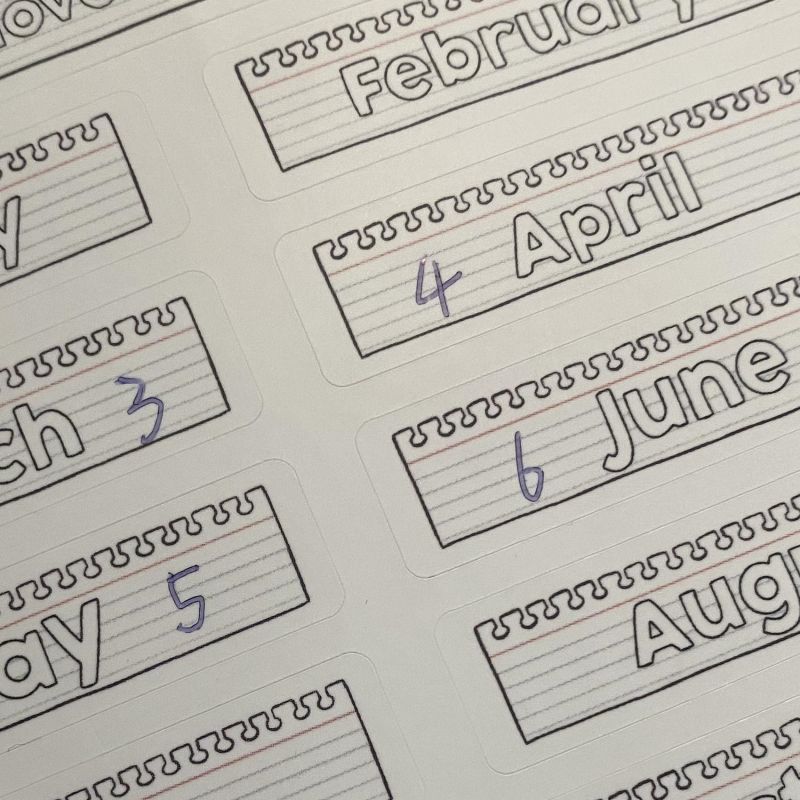 February
4 April
ch 3
6 June
ay 5
Aug